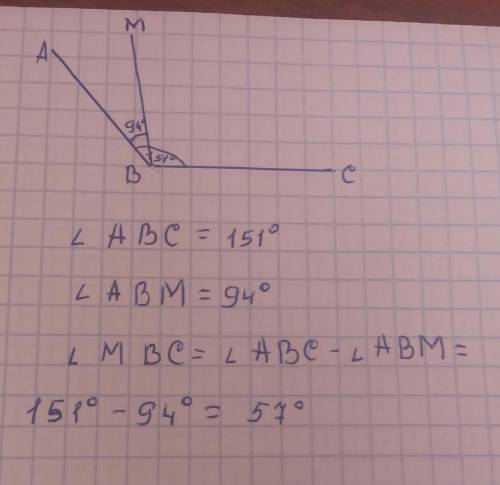 M
A
94°
151°
B
C
∠ ABC = 151°
∠ ABM = 94°
∠ MBC = ∠ ABC - ∠ ABM =
151° - 94° = 57°